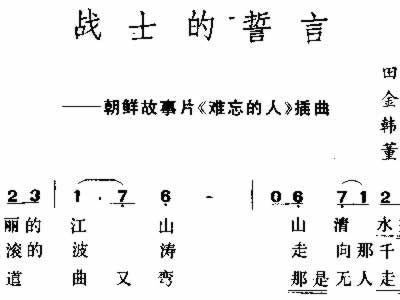 战士的誓言
——朝鲜故事片《难忘的人》插曲
田
金
韩
董
2 3 | 1· 7 6 - | 0 6 7 1 2
丽的 江 山 山 清 水
滚的 波 涛 走 向那 千
道 曲 又 弯 那是 无人 走